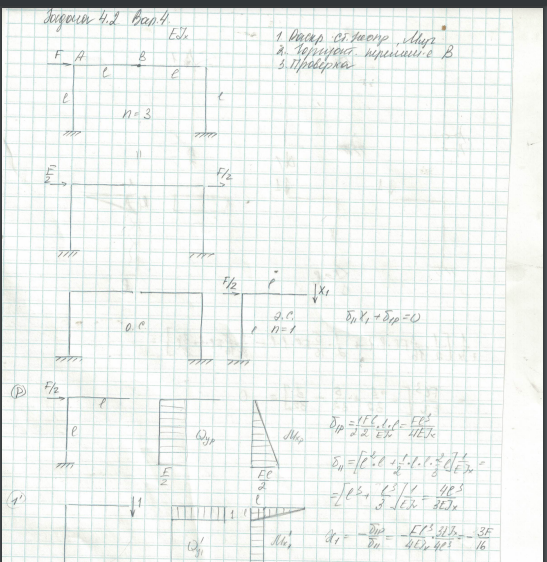 Задача 4.2 Вар.4.
EJx
1. Раскр. ст. неопр, Mизг
2. Горизонт. перемещ. с. B
3. Проверка
F A B
l l
l l
n=3
"
F/2 F/2
F/2 l
X1
о.с. э.с.
l n=1
δ11X1+δ1p=0
(P) F/2 l
l
Qyp Mxp
F/2 Fl/2
δ1p = 1/2 Fl/2 · l · l 1/EJx = Fl³/4EJx
δ11 = [l² · l + 1/2 · l · l · 2/3 l] 1/EJx =
= [l³ + l³/3] 1/EJx = 4l³/3EJx
(1') 1 l
1
Qy1' Mx1'
X1 = - δ1p/δ11 = - Fl³/4EJx · 3EJx/4l³ = - 3F/16